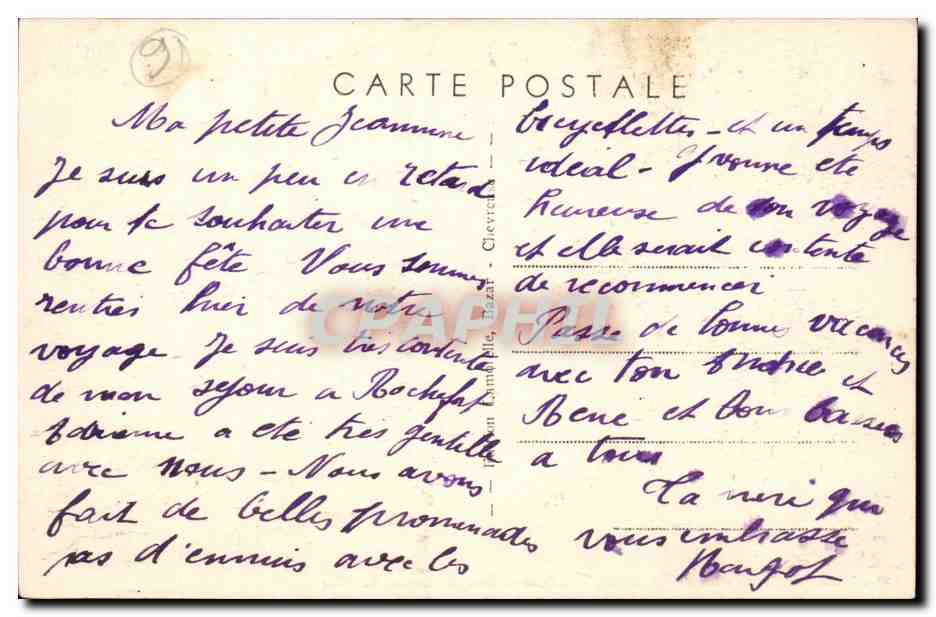 9
CARTE POSTALE
Ma petite Jeannine
Je suis un peu en retard
pour te souhaiter une
bonne fête Vous sommes
rentrés hier de notre
voyage. Je suis très contente
de mon séjour a Rochefort
a été très gentille
avec nous - Nous avons
fait de belles promenades
pas d'ennuis avec les
bicyclettes - et un temps
idéal - Yvonne été
heureuse de son voyage
et elle serait contente
de recommencer
Passe de bonnes vacances
avec ton Andrée et
René et bons baisers
a tous
Ta qui
vous embrasse
Margot
Edition Lamorelle, Bazar - Chevreuse
CPAPHIL